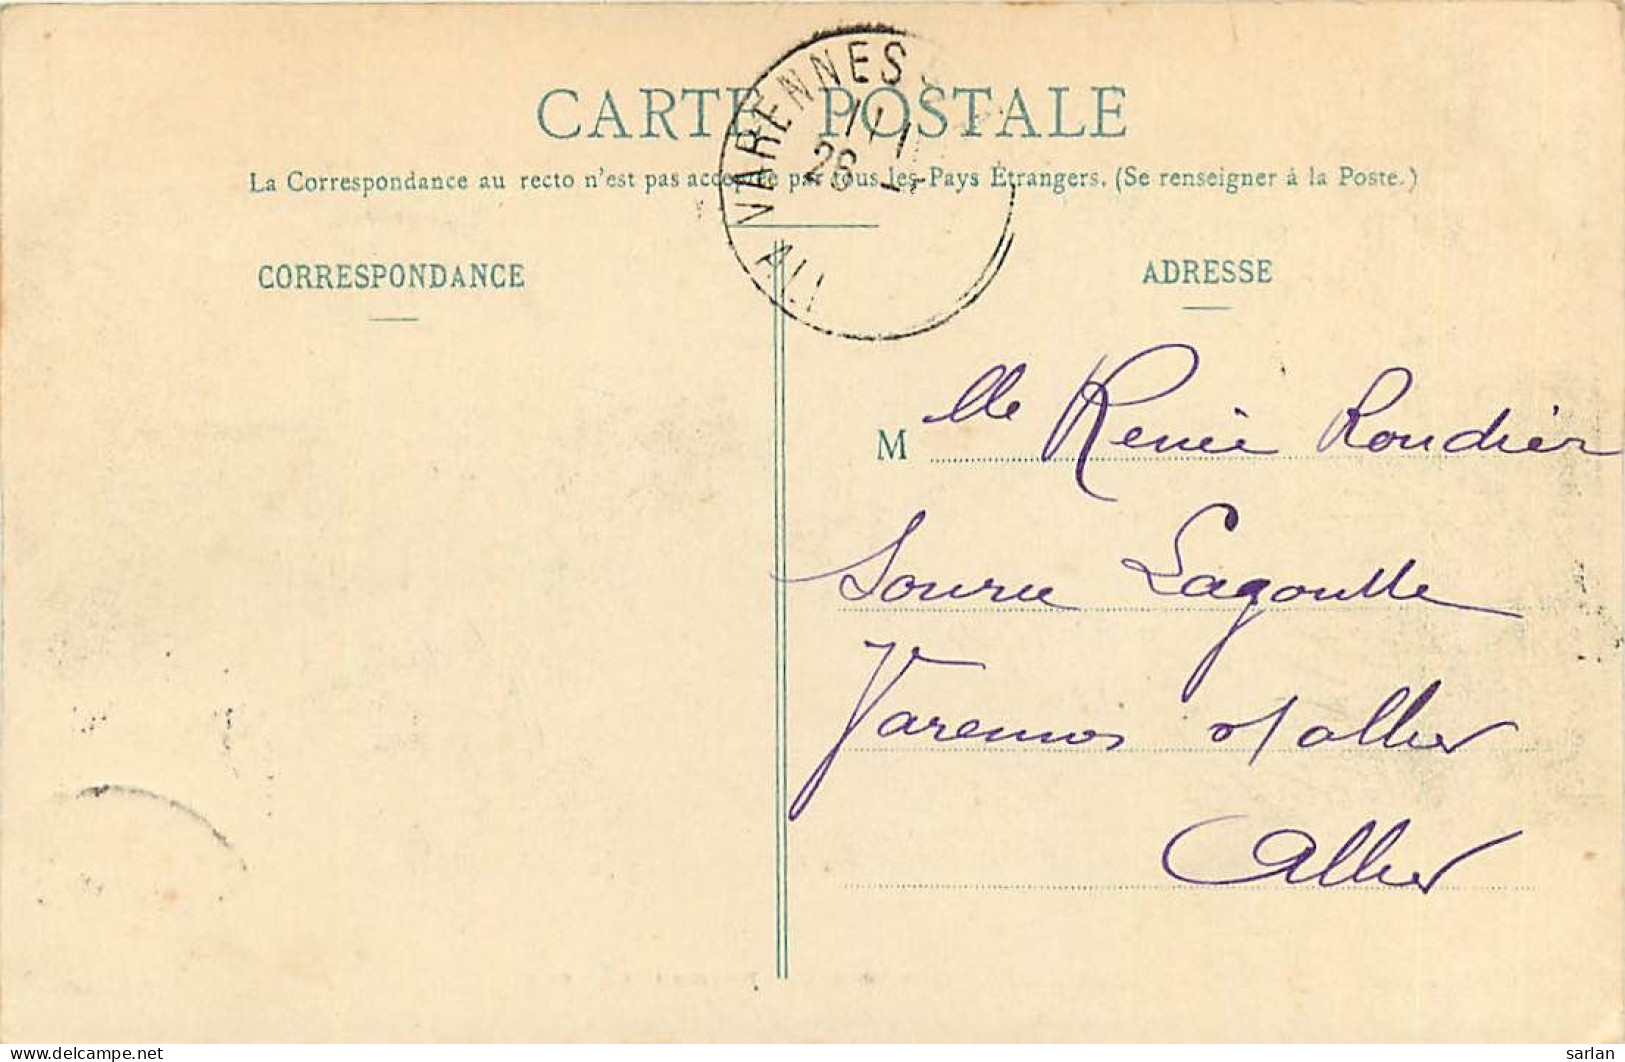 CARTE POSTALE
La Correspondance au recto n'est pas acceptée par tous les Pays Étrangers. (Se renseigner à la Poste.)
VARENNES
26
ALL
CORRESPONDANCE
ADRESSE
Mlle Renée Roudier
Source Lagoutte
Varennes s/ allier
Allier
delcampe.net
sarlan